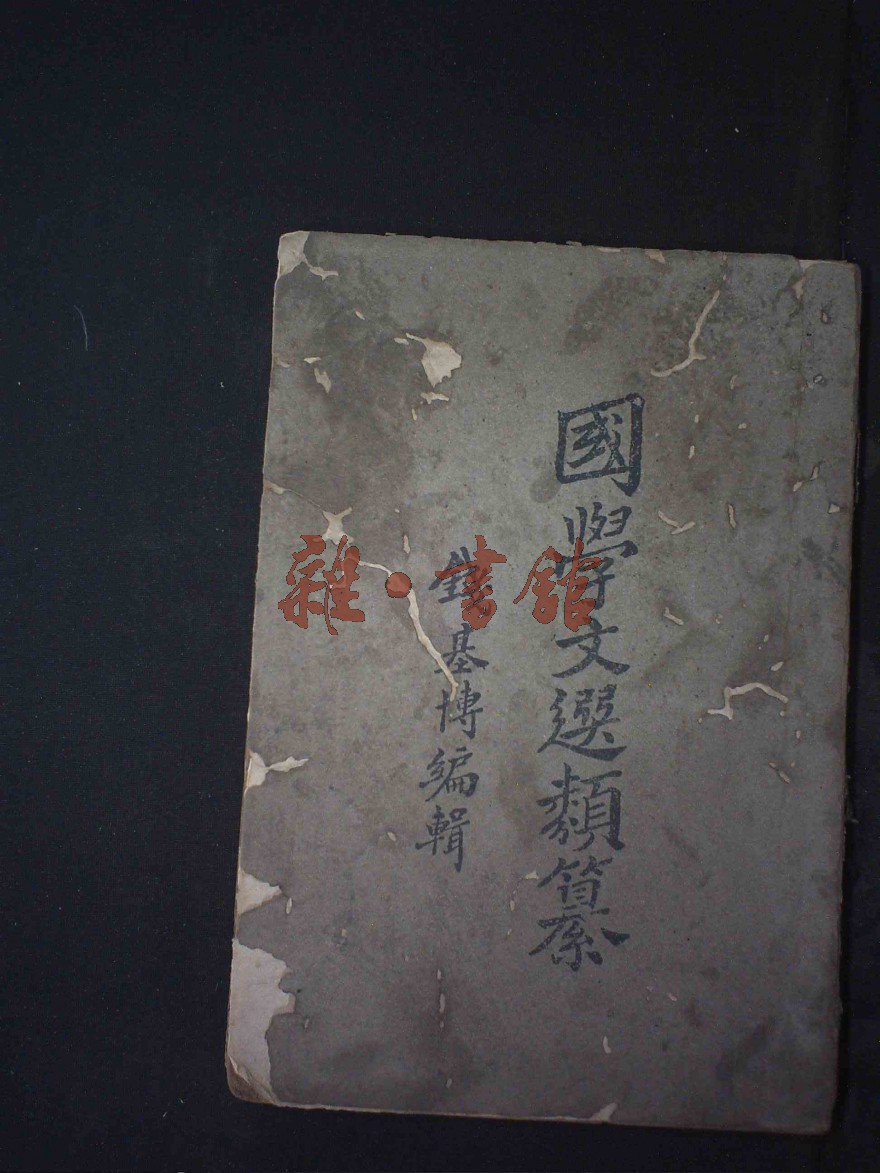 國學文選類纂
錢基博編輯
雜·書館